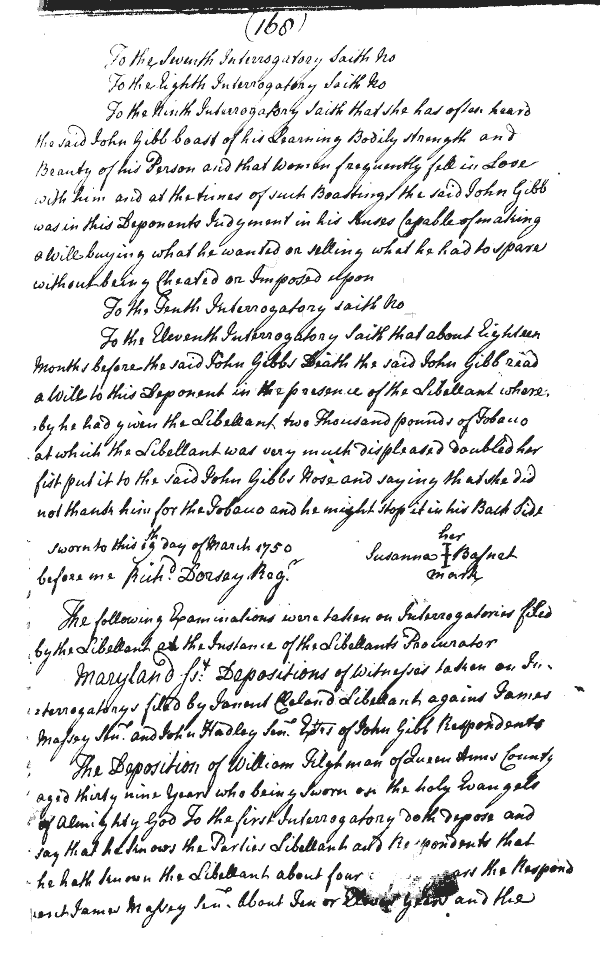 (168)
To the Seventh Interrogatory Saith No
To the Eighth Interrogatory Saith No
To the Ninth Interrogatory Saith that she has often heard
the said John Gibb boast of his Learning Bodily strength and
Beauty of his Person and that Women frequently fell in Love
with him and at the times of such Boastings the said John Gibb
was in this Deponents Judgment in his Senses Capable of making
a Will buying what he wanted or selling what he had to spare
without being Cheated or Imposed upon
To the Tenth Interrogatory saith No
To the Eleventh Interrogatory Saith that about Eighteen
Months before the said John Gibbs Death the said John Gibb read
a Will to this Deponent in the presence of the Libellant where
by he had given the Libellant two Thousand pounds of Tobacco
at which the Libellant was very much displeased doubled her
fist put it to the said John Gibbs Nose and saying that she did
not thank him for the Tobacco and he might stop it in his Back Side
sworn to this 19th day of March 1750
her
Susanna I Basnet
before me Richd. Dorsey Regr.
mark
The following Examinations were taken on Interrogatories filed
by the Libellant at the Instance of the Libellants Procurator
Maryland sst. Depositions of Witnesses taken on In-
terrogatorys filed by Cleland Libellant agains James
Massey Senr. and John Hadley Senr. Exrs of John Gibb Respondents
The Deposition of William Tilghman of Queen Anns County
aged thirty nine Years who being Sworn on the holy Evangels
of Almighty God To the first Interrogatory doth depose and
say that he knows the Parties Libellant and Respondents that
he hath known the Libellant about four ars the Respond
ent James Massey Senr. about Ten or Eleven years and the